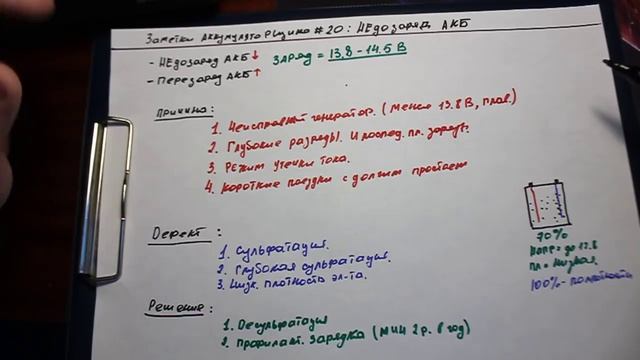 Заметки Аккумуляторщика #20: НЕдозаряд АКБ
- НЕдозаряд АКБ ↓
заряд = 13,8 - 14.5 В
- Перезаряд АКБ ↑
Причина:
1. Неисправный генератор. (менее 13.8 В, плав.)
2. Глубокие разряды. И послед. пл. заряд.
3. Режим утечки тока.
4. Короткие поездки с долгим простоем
Дефект:
1. Сульфатация.
2. Глубокая сульфатация.
3. Низк. плотность эл-та.
70%
напр = до 12.8
пл = низкая.
100% - полностью
Решение:
1. Десульфатация
2. Профилакт. зарядка (мин 2 р. в год)